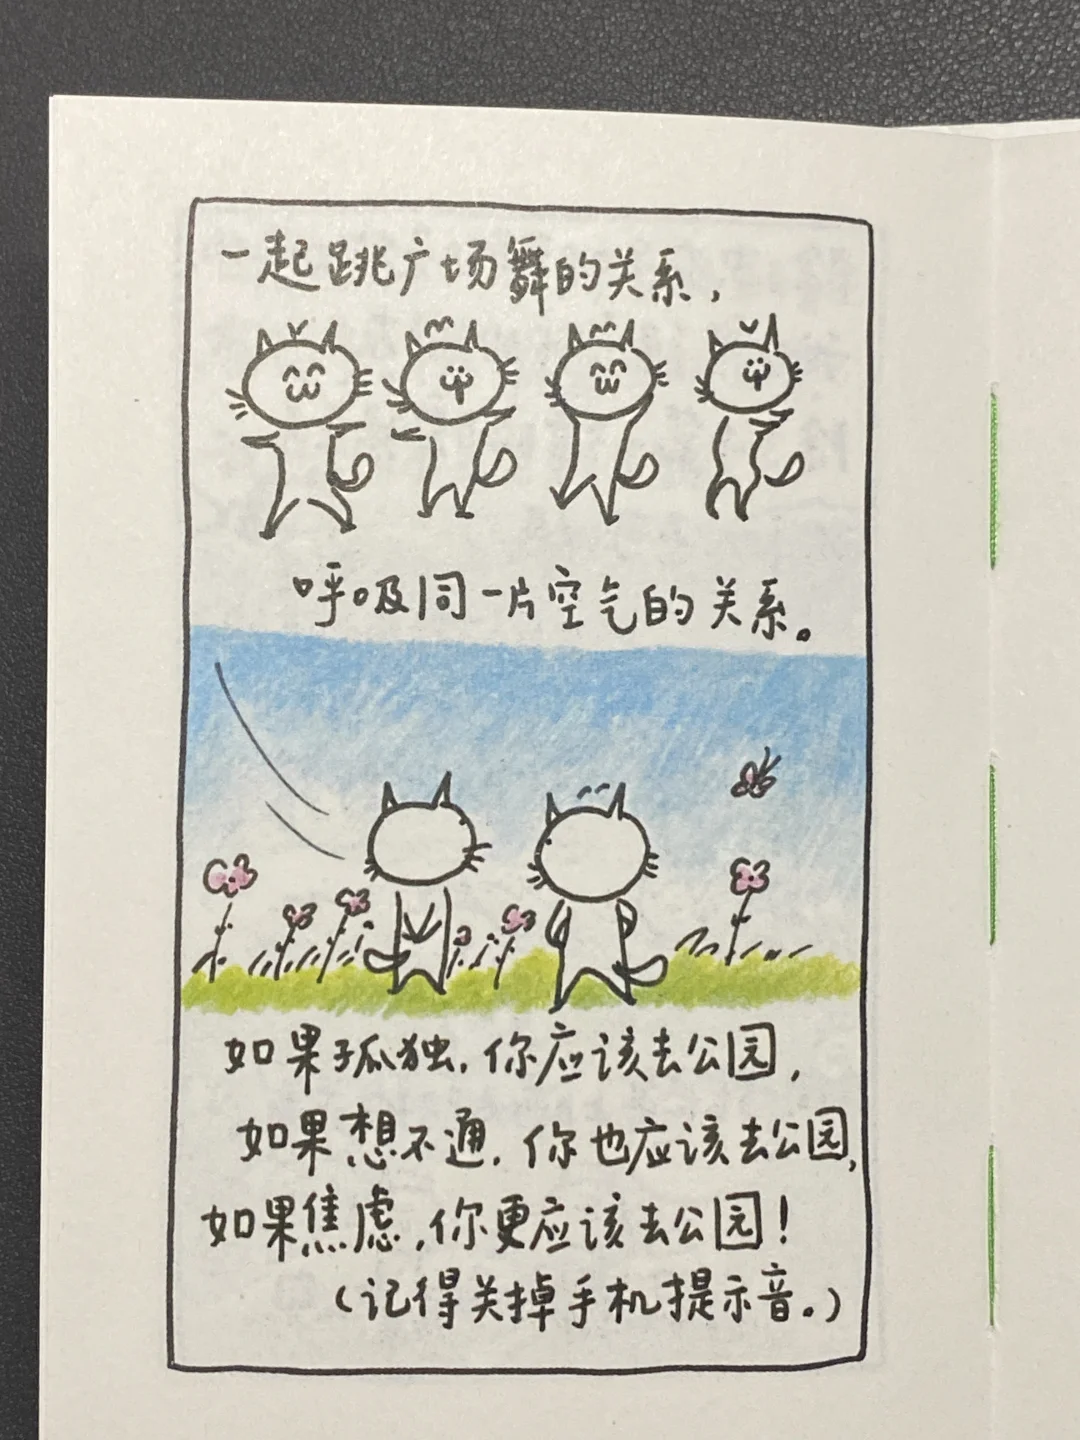 一起跳广场舞的关系，
呼吸同一片空气的关系。
如果孤独，你应该去公园，
如果想不通，你也应该去公园，
如果焦虑，你更应该去公园！
（记得关掉手机提示音。）